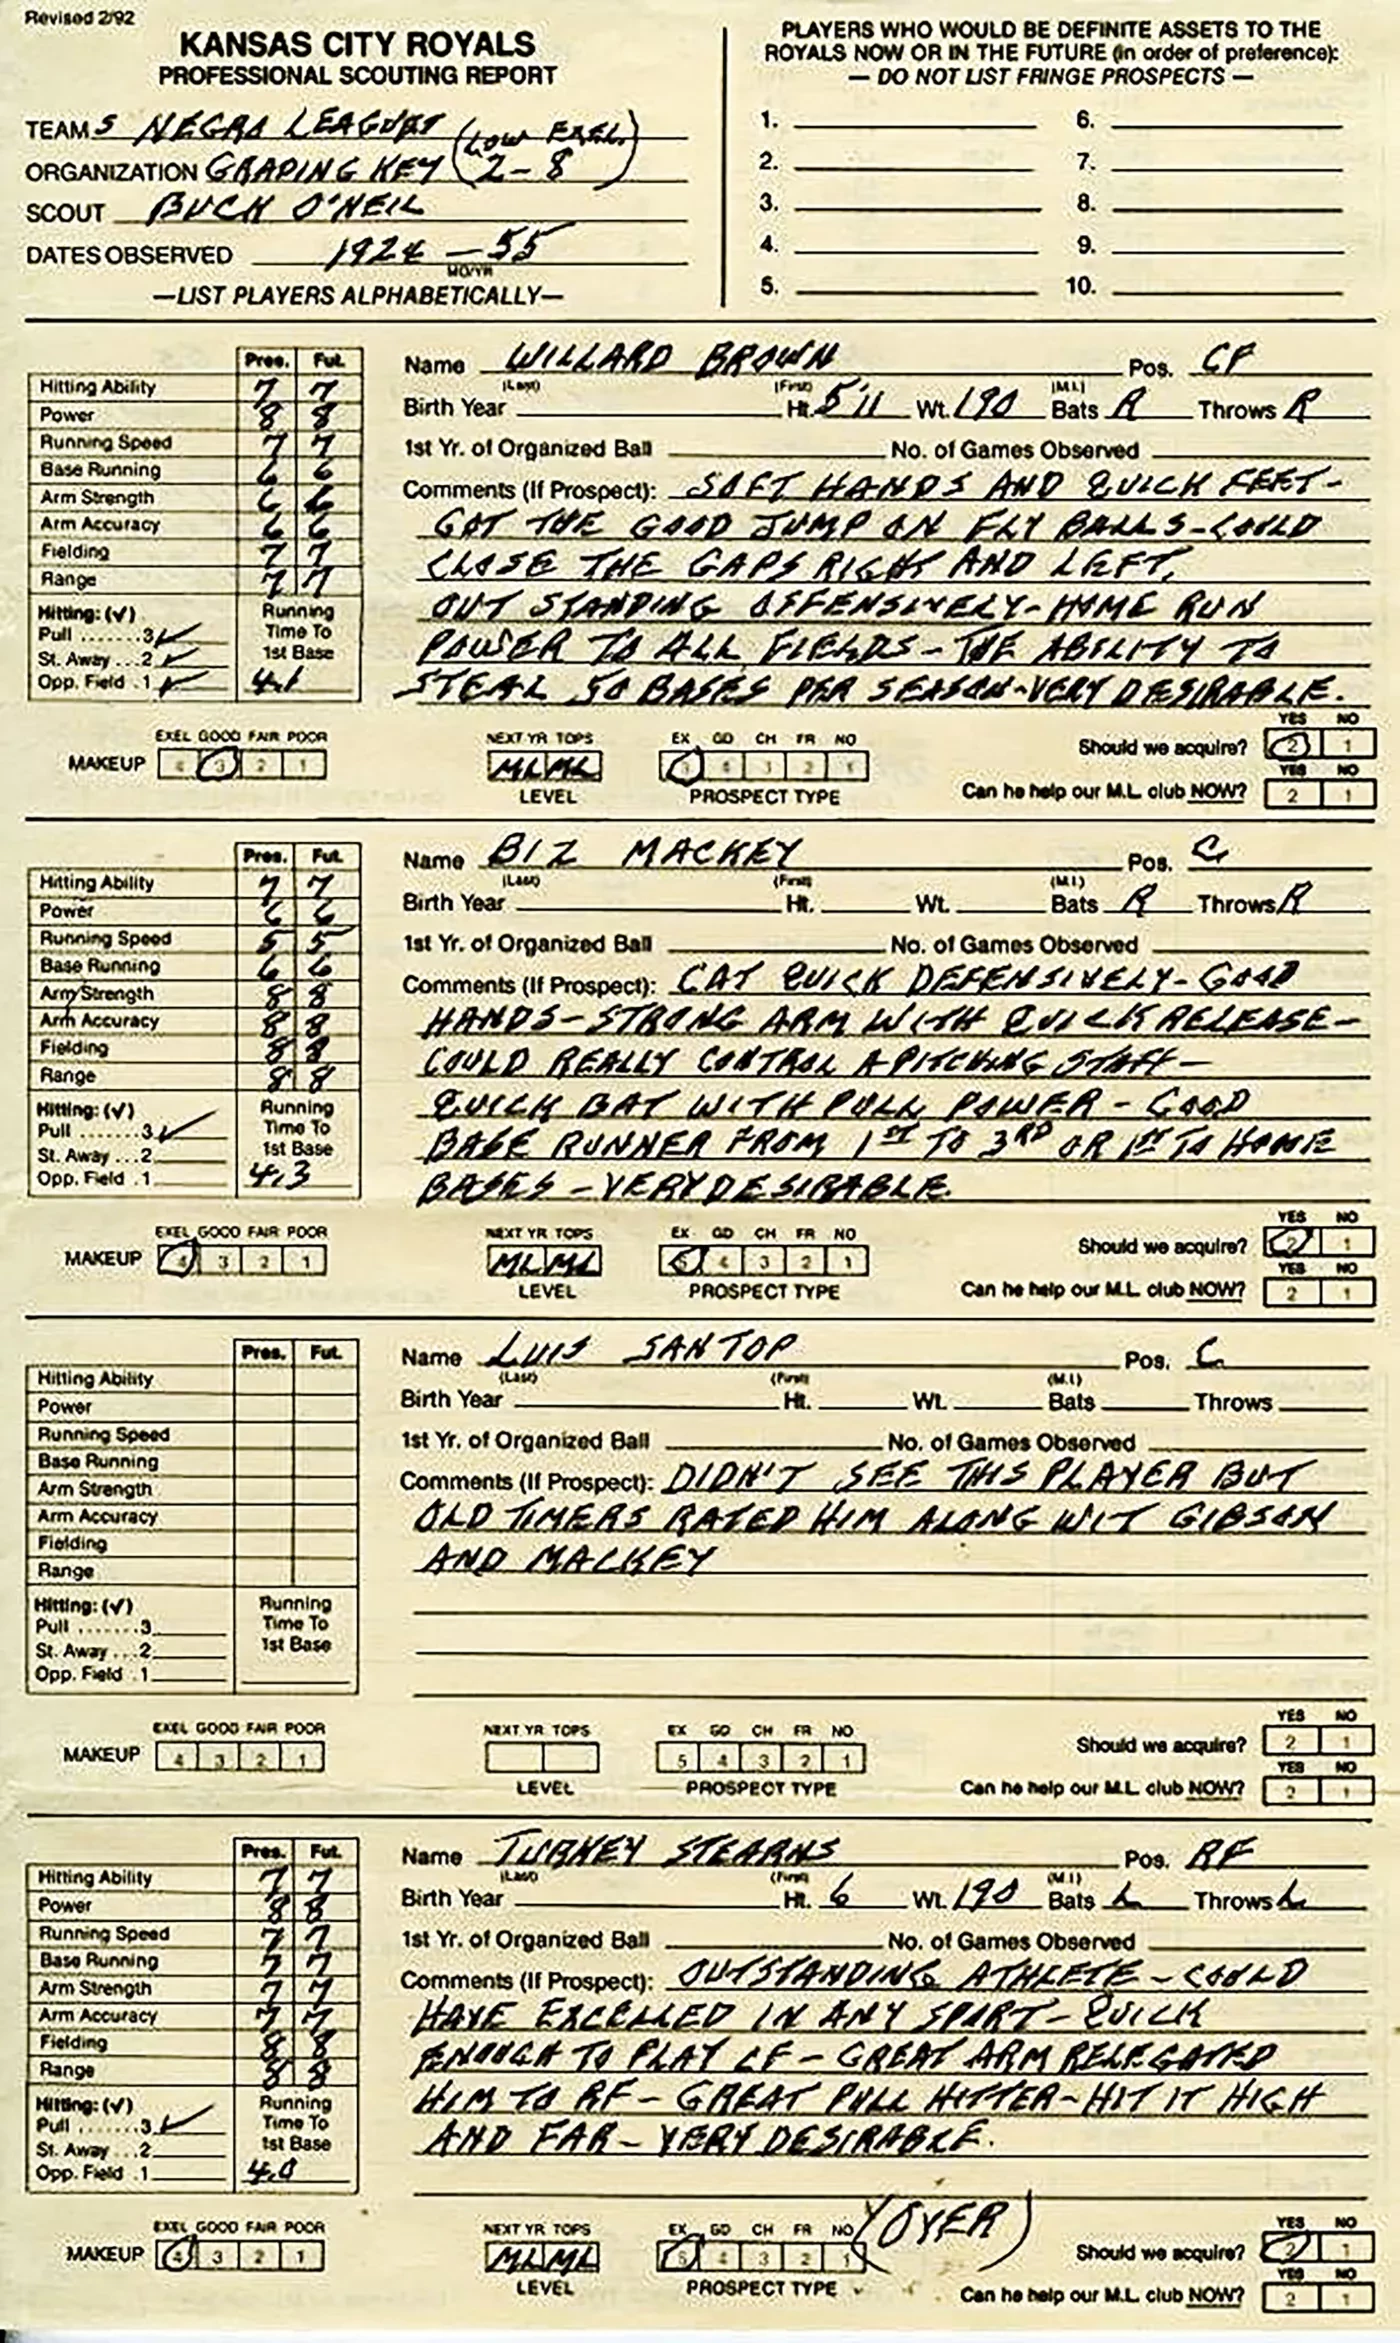 Revised 2/92
KANSAS CITY ROYALS
PROFESSIONAL SCOUTING REPORT
TEAM S NEGRO LEAGUES
ORGANIZATION GRADING KEY (LOW EXEL. 2-8)
SCOUT BUCK O'NEIL
DATES OBSERVED 1924 - 55
MO/YR
—LIST PLAYERS ALPHABETICALLY—
PLAYERS WHO WOULD BE DEFINITE ASSETS TO THE
ROYALS NOW OR IN THE FUTURE (in order of preference):
— DO NOT LIST FRINGE PROSPECTS —
1. 6.
2. 7.
3. 8.
4. 9.
5. 10.
Pres. Fut.
Hitting Ability 7 7
Power 8 8
Running Speed 7 7
Base Running 6 6
Arm Strength 6 6
Arm Accuracy 6 6
Fielding 7 7
Range 7 7
Hitting: (✓) Running
Pull .......3 ✓ Time To
St. Away ...2 ✓ 1st Base
Opp. Field .1 ✓ 4.1
Name WILLARD BROWN Pos. CF
(Last) (First) (M.I.)
Birth Year Ht. 5'11 Wt. 190 Bats R Throws R
1st Yr. of Organized Ball No. of Games Observed
Comments (If Prospect): SOFT HANDS AND QUICK FEET-
GOT THE GOOD JUMP ON FLY BALLS-COULD
CLOSE THE GAPS RIGHT AND LEFT.
OUT STANDING OFFENSIVELY-HOME RUN
POWER TO ALL FIELDS-THE ABILITY TO
STEAL 50 BASES PER SEASON-VERY DESIRABLE.
EXEL GOOD FAIR POOR
MAKEUP 4 3 2 1
NEXT YR TOPS
ML ML
LEVEL
EX GD CH FR NO
5 4 3 2 1
PROSPECT TYPE
YES NO
Should we acquire? 2 1
YES NO
Can he help our M.L. club NOW? 2 1
Pres. Fut.
Hitting Ability 7 7
Power 6 6
Running Speed 5 5
Base Running 6 6
Arm Strength 8 8
Arm Accuracy 8 8
Fielding 8 8
Range 8 8
Hitting: (✓) Running
Pull .......3 ✓ Time To
St. Away ...2 1st Base
Opp. Field .1 4.3
Name BIZ MACKEY Pos. C
(Last) (First) (M.I.)
Birth Year Ht. Wt. Bats R Throws R
1st Yr. of Organized Ball No. of Games Observed
Comments (If Prospect): CAT QUICK DEFENSIVELY-GOOD
HANDS-STRONG ARM WITH QUICK RELEASE-
COULD REALLY CONTROL A PITCHING STAFF-
QUICK BAT WITH PULL POWER-GOOD
BASE RUNNER FROM 1ST TO 3RD OR 1ST TO HOME
BASES-VERY DESIRABLE.
EXEL GOOD FAIR POOR
MAKEUP 4 3 2 1
NEXT YR TOPS
ML ML
LEVEL
EX GD CH FR NO
5 4 3 2 1
PROSPECT TYPE
YES NO
Should we acquire? 2 1
YES NO
Can he help our M.L. club NOW? 2 1
Pres. Fut.
Hitting Ability
Power
Running Speed
Base Running
Arm Strength
Arm Accuracy
Fielding
Range
Hitting: (✓) Running
Pull .......3 Time To
St. Away ...2 1st Base
Opp. Field .1
Name LUIS SANTOP Pos. C
(Last) (First) (M.I.)
Birth Year Ht. Wt. Bats Throws
1st Yr. of Organized Ball No. of Games Observed
Comments (If Prospect): DIDN'T SEE THIS PLAYER BUT
OLD TIMERS RATED HIM ALONG WIT GIBSON
AND MACKEY
EXEL GOOD FAIR POOR
MAKEUP 4 3 2 1
NEXT YR TOPS
LEVEL
EX GD CH FR NO
5 4 3 2 1
PROSPECT TYPE
YES NO
Should we acquire? 2 1
YES NO
Can he help our M.L. club NOW? 2 1
Pres. Fut.
Hitting Ability 7 7
Power 8 8
Running Speed 7 7
Base Running 7 7
Arm Strength 7 7
Arm Accuracy 7 7
Fielding 8 8
Range 8 8
Hitting: (✓) Running
Pull .......3 ✓ Time To
St. Away ...2 1st Base
Opp. Field .1 4.0
Name TURKEY STEARNS Pos. RF
(Last) (First) (M.I.)
Birth Year Ht. 6 Wt. 190 Bats L Throws L
1st Yr. of Organized Ball No. of Games Observed
Comments (If Prospect): OUTSTANDING ATHLETE-COULD
HAVE EXCELLED IN ANY SPORT-QUICK
ENOUGH TO PLAY CF-GREAT ARM RELEGATED
HIM TO RF-GREAT PULL HITTER-HIT IT HIGH
AND FAR-VERY DESIRABLE.
(OVER)
EXEL GOOD FAIR POOR
MAKEUP 4 3 2 1
NEXT YR TOPS
ML ML
LEVEL
EX GD CH FR NO
5 4 3 2 1
PROSPECT TYPE
YES NO
Should we acquire? 2 1
YES NO
Can he help our M.L. club NOW? 2 1